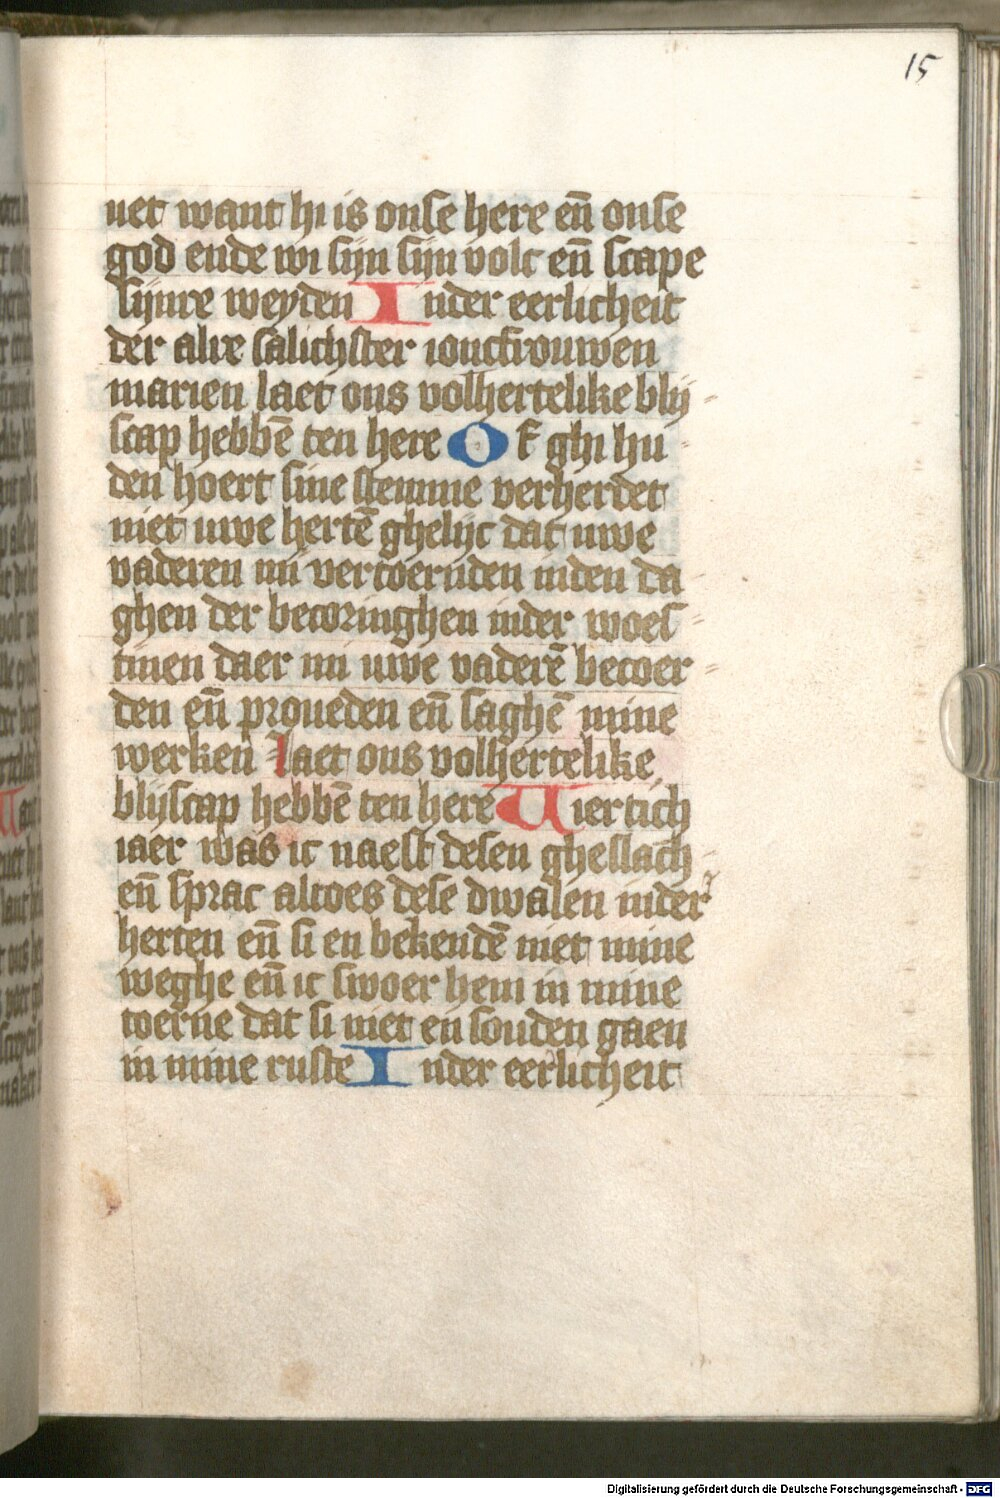 15
uet want hi is onse here en̄ onse
god ende wi sijn sijn volc en̄ scape
sijnre weyden Inder eerlicheit
der alre salichster ioncfrouwen
marien laet ons volhertelike blij-
scap hebbē ten here Of ghi hu-
den hoert sine stemme verherdet
niet uwe hertē ghelijc dat uwe
vaderen mi vertoernden inden da-
ghen der becoringhen inder woes-
tinen daer mi uwe vaderē becoer-
den en̄ proueden en̄ saghē mine
werken laet ons volhertelike
blijscap hebbē ten here Viertich
iaer was ic naest desen gheslach-
en̄ sprac altoes dese dwalen inder
herten en̄ si en bekendē niet mine
weghe en̄ ic swoer hem in mine
toerne dat si niet en souden gaen
in mine ruste Inder eerlicheit
Digitalisierung gefördert durch die Deutsche Forschungsgemeinschaft - DFG